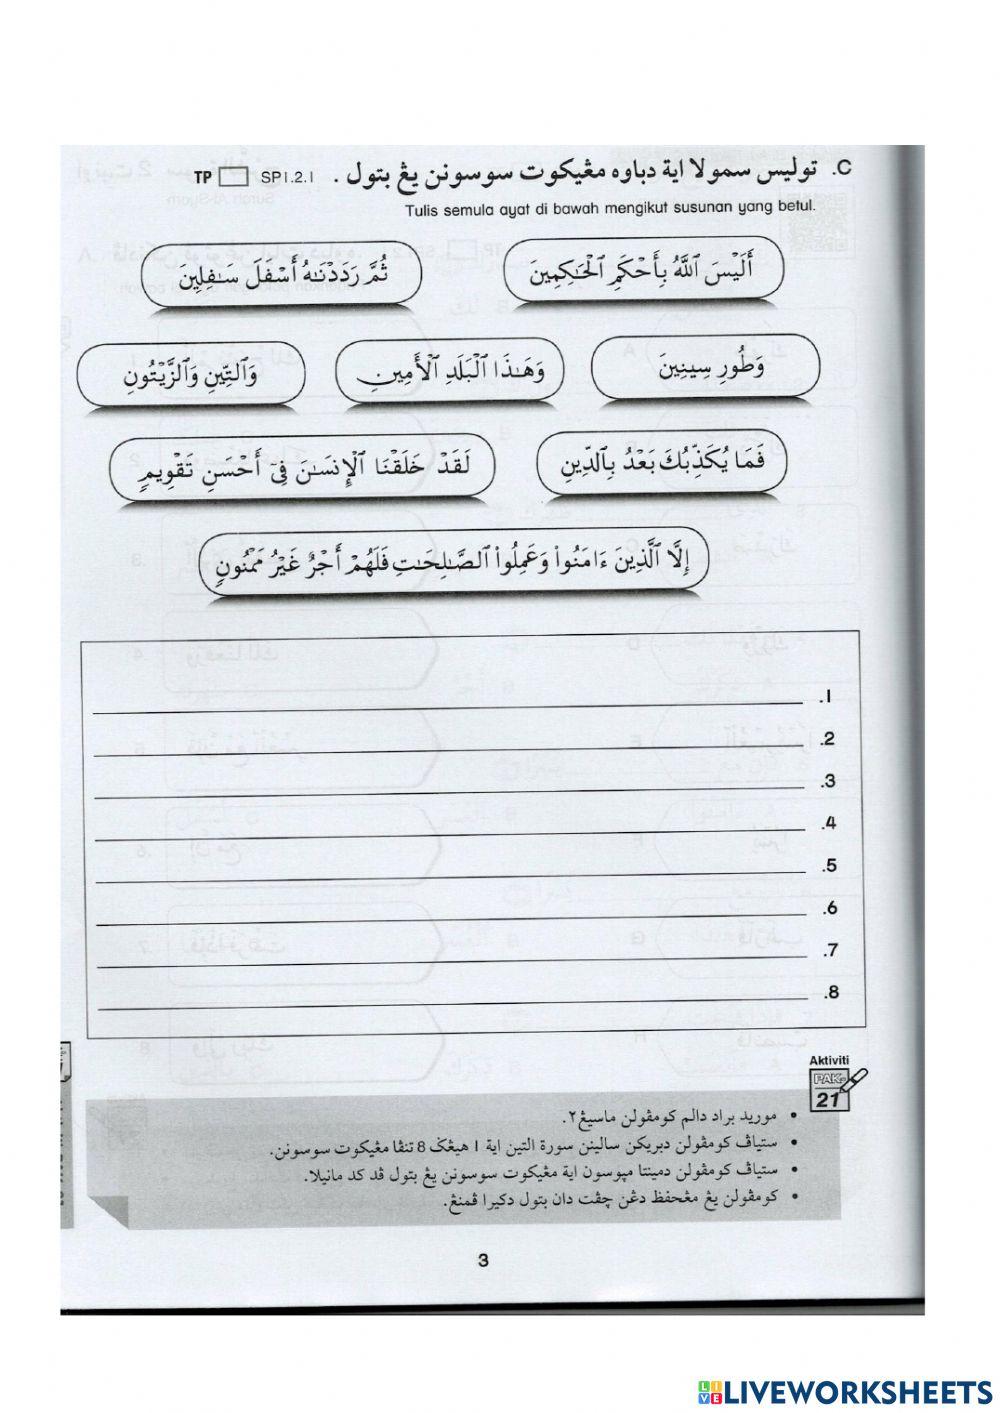 C. توليس سمولا اية دباوه مڠيکوت سوسونن يڠ بتول . SP1.2.1 TP
Tulis semula ayat di bawah mengikut susunan yang betul.
أَلَيْسَ ٱللَّهُ بِأَحْكَمِ ٱلْحَـٰكِمِينَ
ثُمَّ رَدَدْنَـٰهُ أَسْفَلَ سَـٰفِلِينَ
وَطُورِ سِينِينَ
وَهَـٰذَا ٱلْبَلَدِ ٱلْأَمِينِ
وَٱلتِّينِ وَٱلزَّيْتُونِ
فَمَا يُكَذِّبُكَ بَعْدُ بِٱلدِّينِ
لَقَدْ خَلَقْنَا ٱلْإِنسَـٰنَ فِىٓ أَحْسَنِ تَقْوِيمٍ
إِلَّا ٱلَّذِينَ ءَامَنُوا۟ وَعَمِلُوا۟ ٱلصَّـٰلِحَـٰتِ فَلَهُمْ أَجْرٌ غَيْرُ مَمْنُونٍ
1.
2.
3.
4.
5.
6.
7.
8.
Aktiviti
PAK-21
• موريد براد دالم کومڤولن ماسيڠ٢.
• ستياڤ کومڤولن دبريکن سالينن سورة التين اية 1 هيڠݢ 8 تنڤا مڠيکوت سوسونن.
• ستياڤ کومڤولن دمينتا مپوسون اية مڠيکوت سوسونن يڠ بتول ڤد کد مانيلا.
• کومڤولن يڠ مڠحفظ دڠن چڤت دان بتول دکيرا ڤمنڠ.
3
LIVEWORKSHEETS